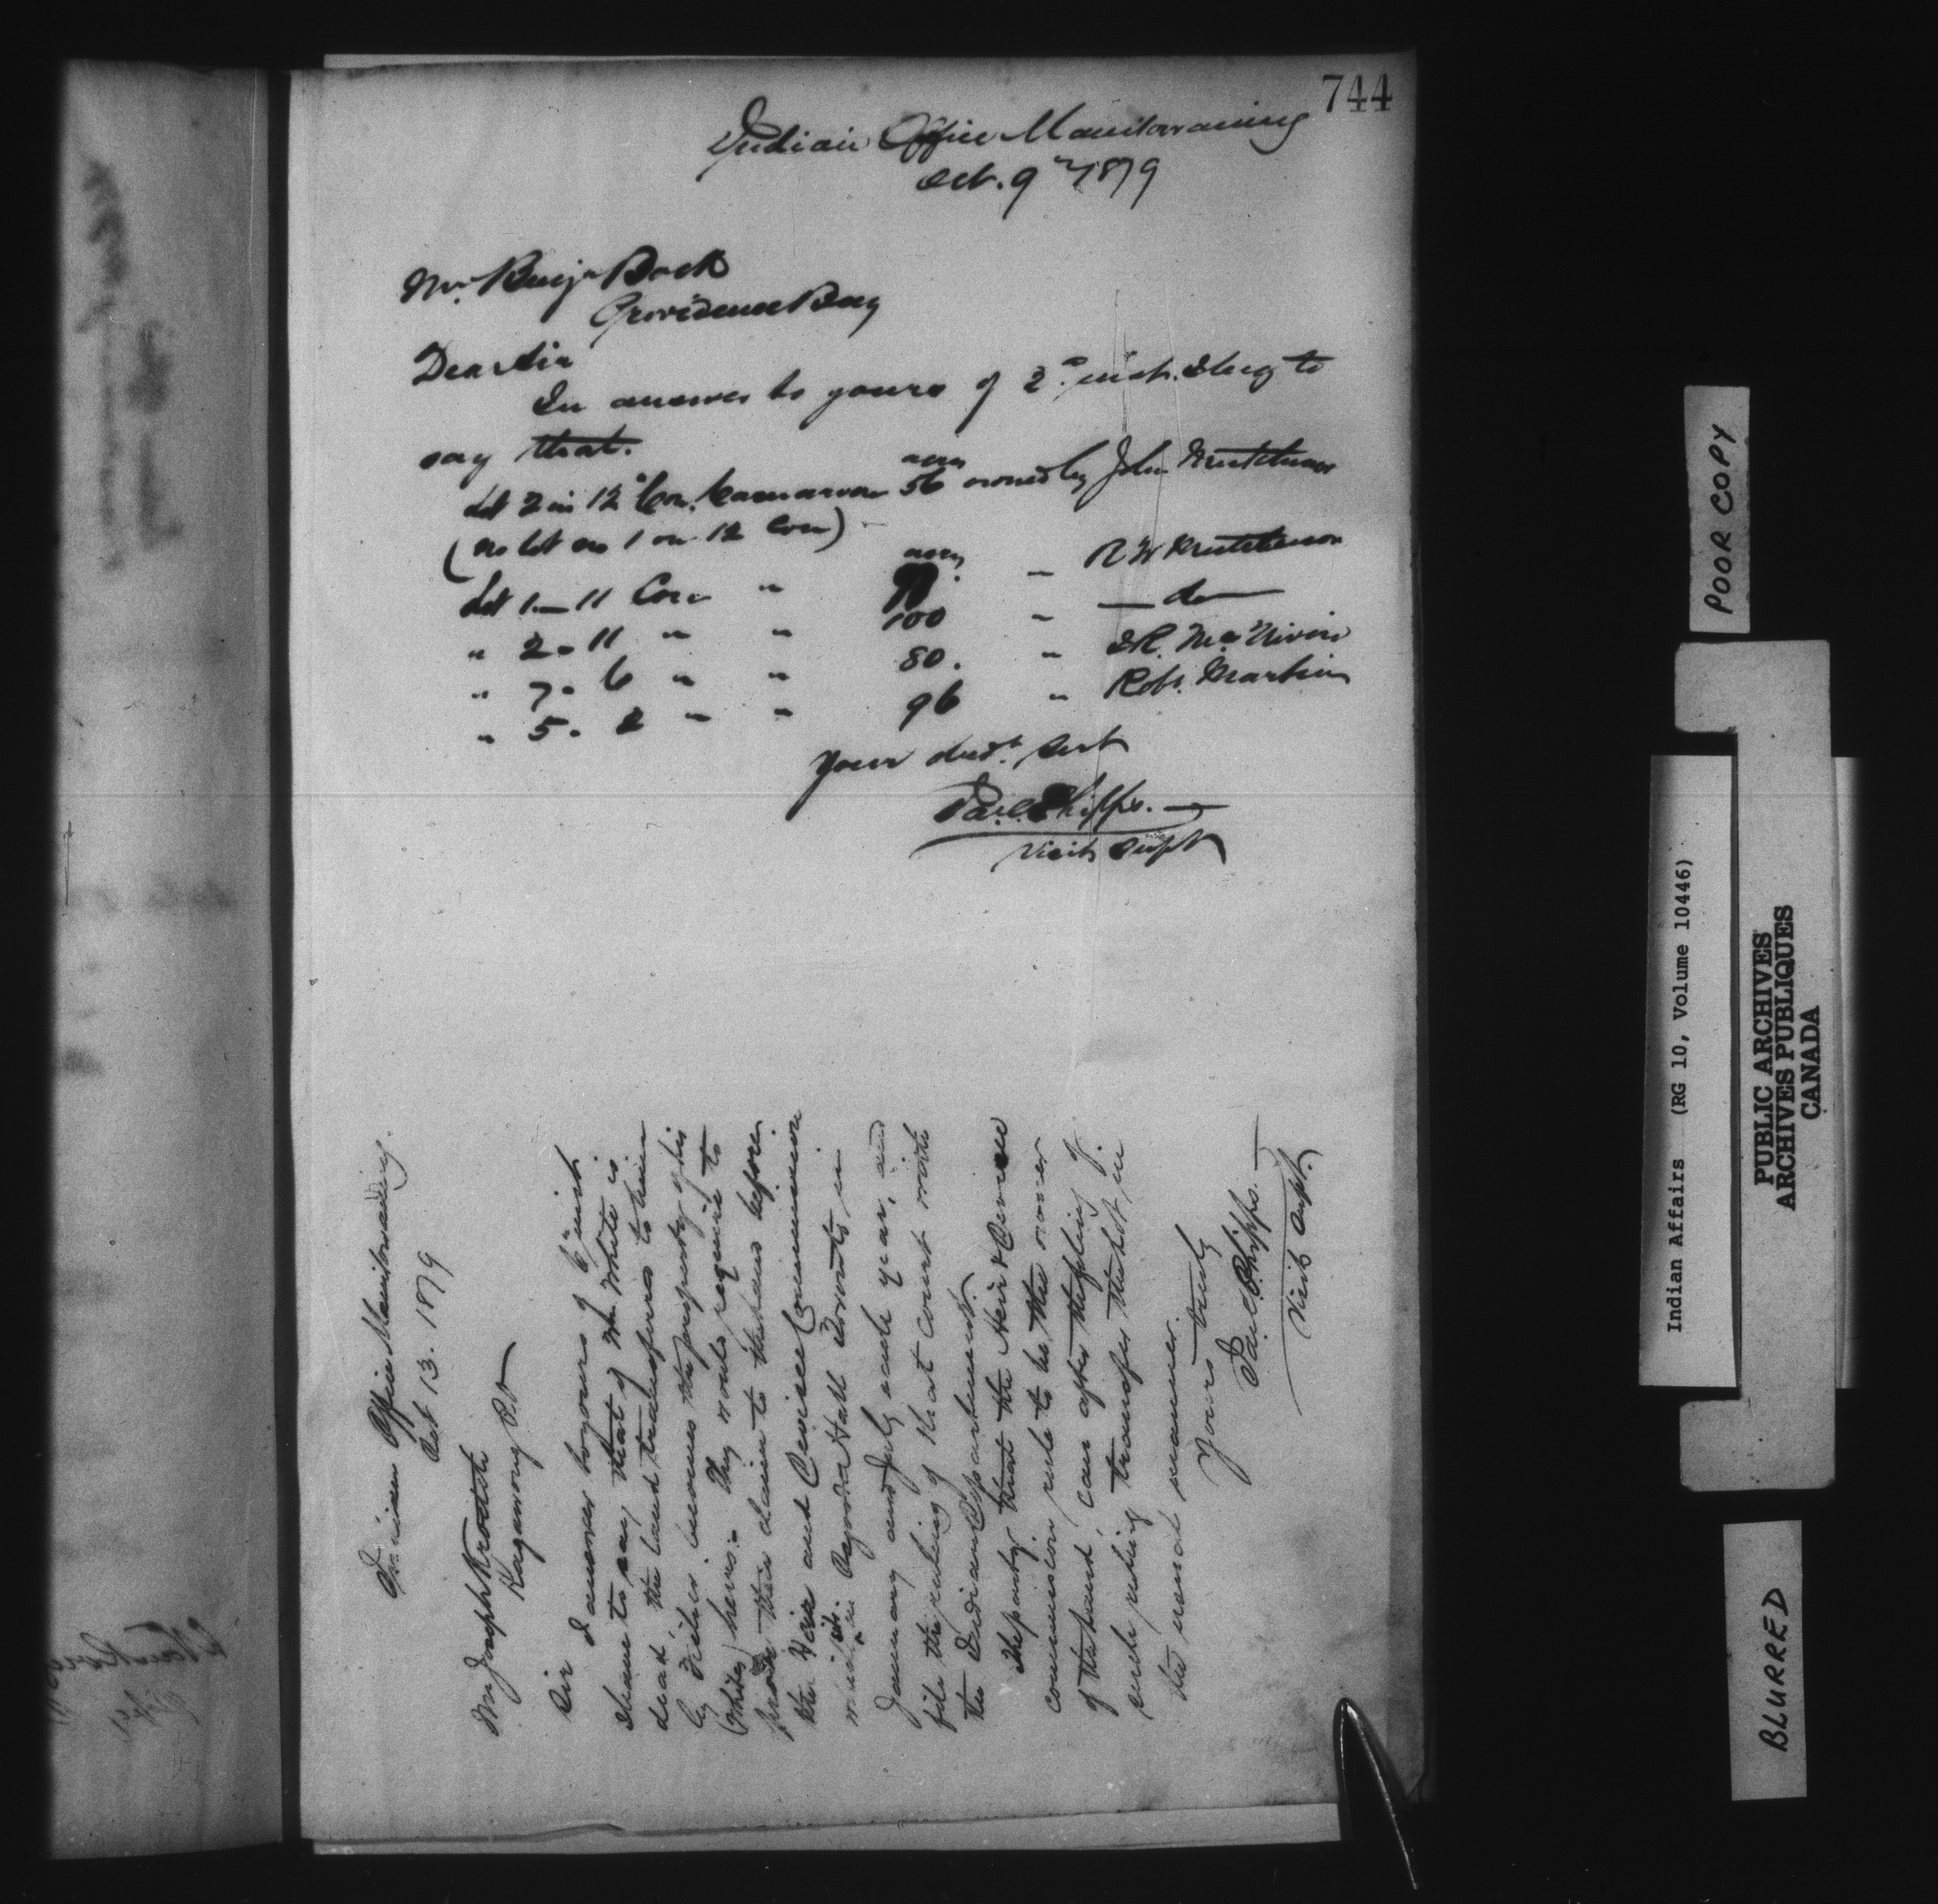 744
Indian Office Manitowaning
Oct. 9th 1879
Mr. Benjn Back
Providence Bay
Dear Sir
In answer to yours of 2d inst. I beg to
say that.
acres
Lot 2 in 12 Con. Carnarvon 56 owned by John
(no lot no 1 on 12 Con)
acres
Lot 1 – 11 Con " " R W
" 2 - 11 " " 100 " — do —
" 7 - 6 " " 80. " McNiven
" 5 - 2 " " 96 " Robt. Martin
Your obedt. Servt
Jas. C. Phipps.
Visitg Supt
Indian Office Manitowaning.
Oct 13. 1879
Mr Joseph
Kagawong P.O
Sir
I answer to yours of 6th inst.
I have to say that if Mr White is
dead, the land transferred to him
by becomes the property of his
(Whites) heirs. They would require to
prove their claim to the before
the Heir and Devisee Commission
which sits in Osgoode Hall Toronto in
January and July each year, and
file the ruling of that court with
the Indian Department.
The party that the Heir & Devisee
commission rule to be the owner
of the land, can after the filing of
such ruling transfer the lot in
the usual manner.
Yours truly
Jas. C. Phipps.
Visitg Supt.
POOR COPY
Indian Affairs (RG 10, Volume 10446)
PUBLIC ARCHIVES
ARCHIVES PUBLIQUES
CANADA
BLURRED